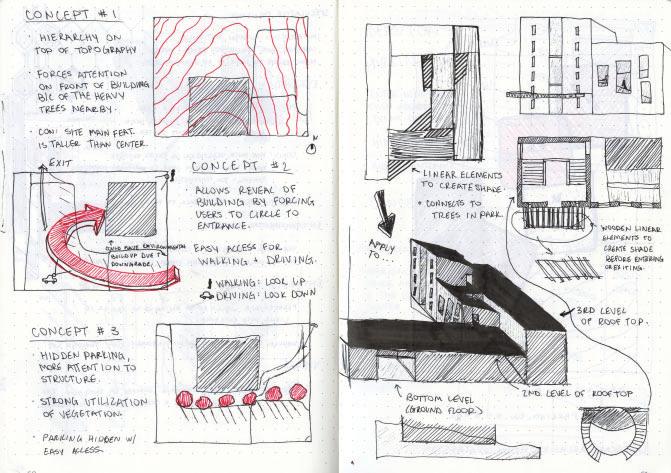 CONCEPT #1
· HIERARCHY ON
TOP OF TOPOGRAPHY
· FORCES ATTENTION
ON FRONT OF BUILDING
B/C OF THE HEAVY
TREES NEARBY.
· CON: SITE MAIN FEAT.
IS TALLER THAN CENTER.
N
EXIT
COULD HAVE ENVIRONMENTAL
BUILDUP DUE TO
DOWNGRADE.
CONCEPT #2
· ALLOWS REVEAL OF
BUILDING BY FORCING
USERS TO CIRCLE TO
ENTRANCE.
· EASY ACCESS FOR
WALKING + DRIVING.
WALKING: LOOK UP
DRIVING: LOOK DOWN
CONCEPT #3
· HIDDEN PARKING,
MORE ATTENTION TO
STRUCTURE.
· STRONG UTILIZATION
OF VEGETATION.
· PARKING HIDDEN W/
EASY ACCESS.
LINEAR ELEMENTS
TO CREATE SHADE.
· CONNECTS TO
TREES IN PARK.
APPLY
TO...
WOODEN LINEAR
ELEMENTS TO
CREATE SHADE
BEFORE ENTERING
OR EXITING.
3RD LEVEL
OF ROOF TOP.
2ND LEVEL OF ROOFTOP
BOTTOM LEVEL
(GROUND FLOOR)